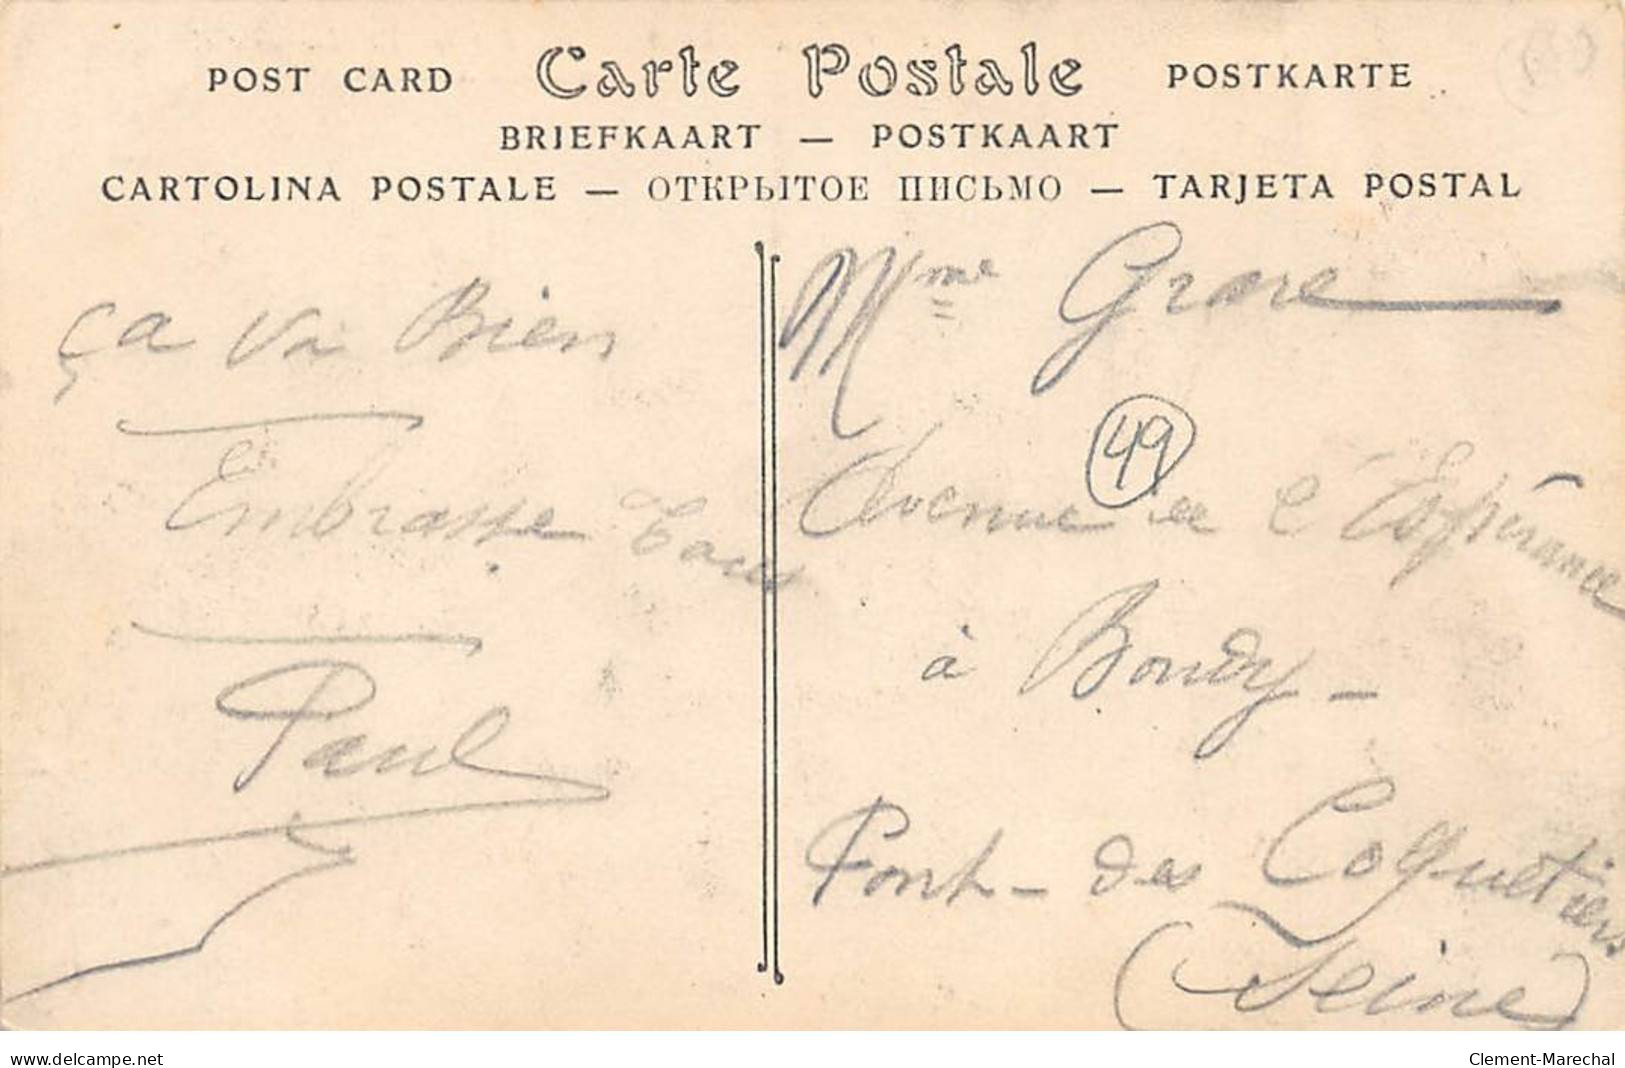 POST CARD Carte Postale POSTKARTE
BRIEFKAART — POSTKAART
CARTOLINA POSTALE — ОТКРЫТОЕ ПИСЬМО — TARJETA POSTAL
ça va Bien
Embrasse tous
Paul
Mme
49
Avenue de l'Espérance
à Bondy -
Pont - des Coquetiers
(Seine)
www.delcampe.net
Clement-Marechal